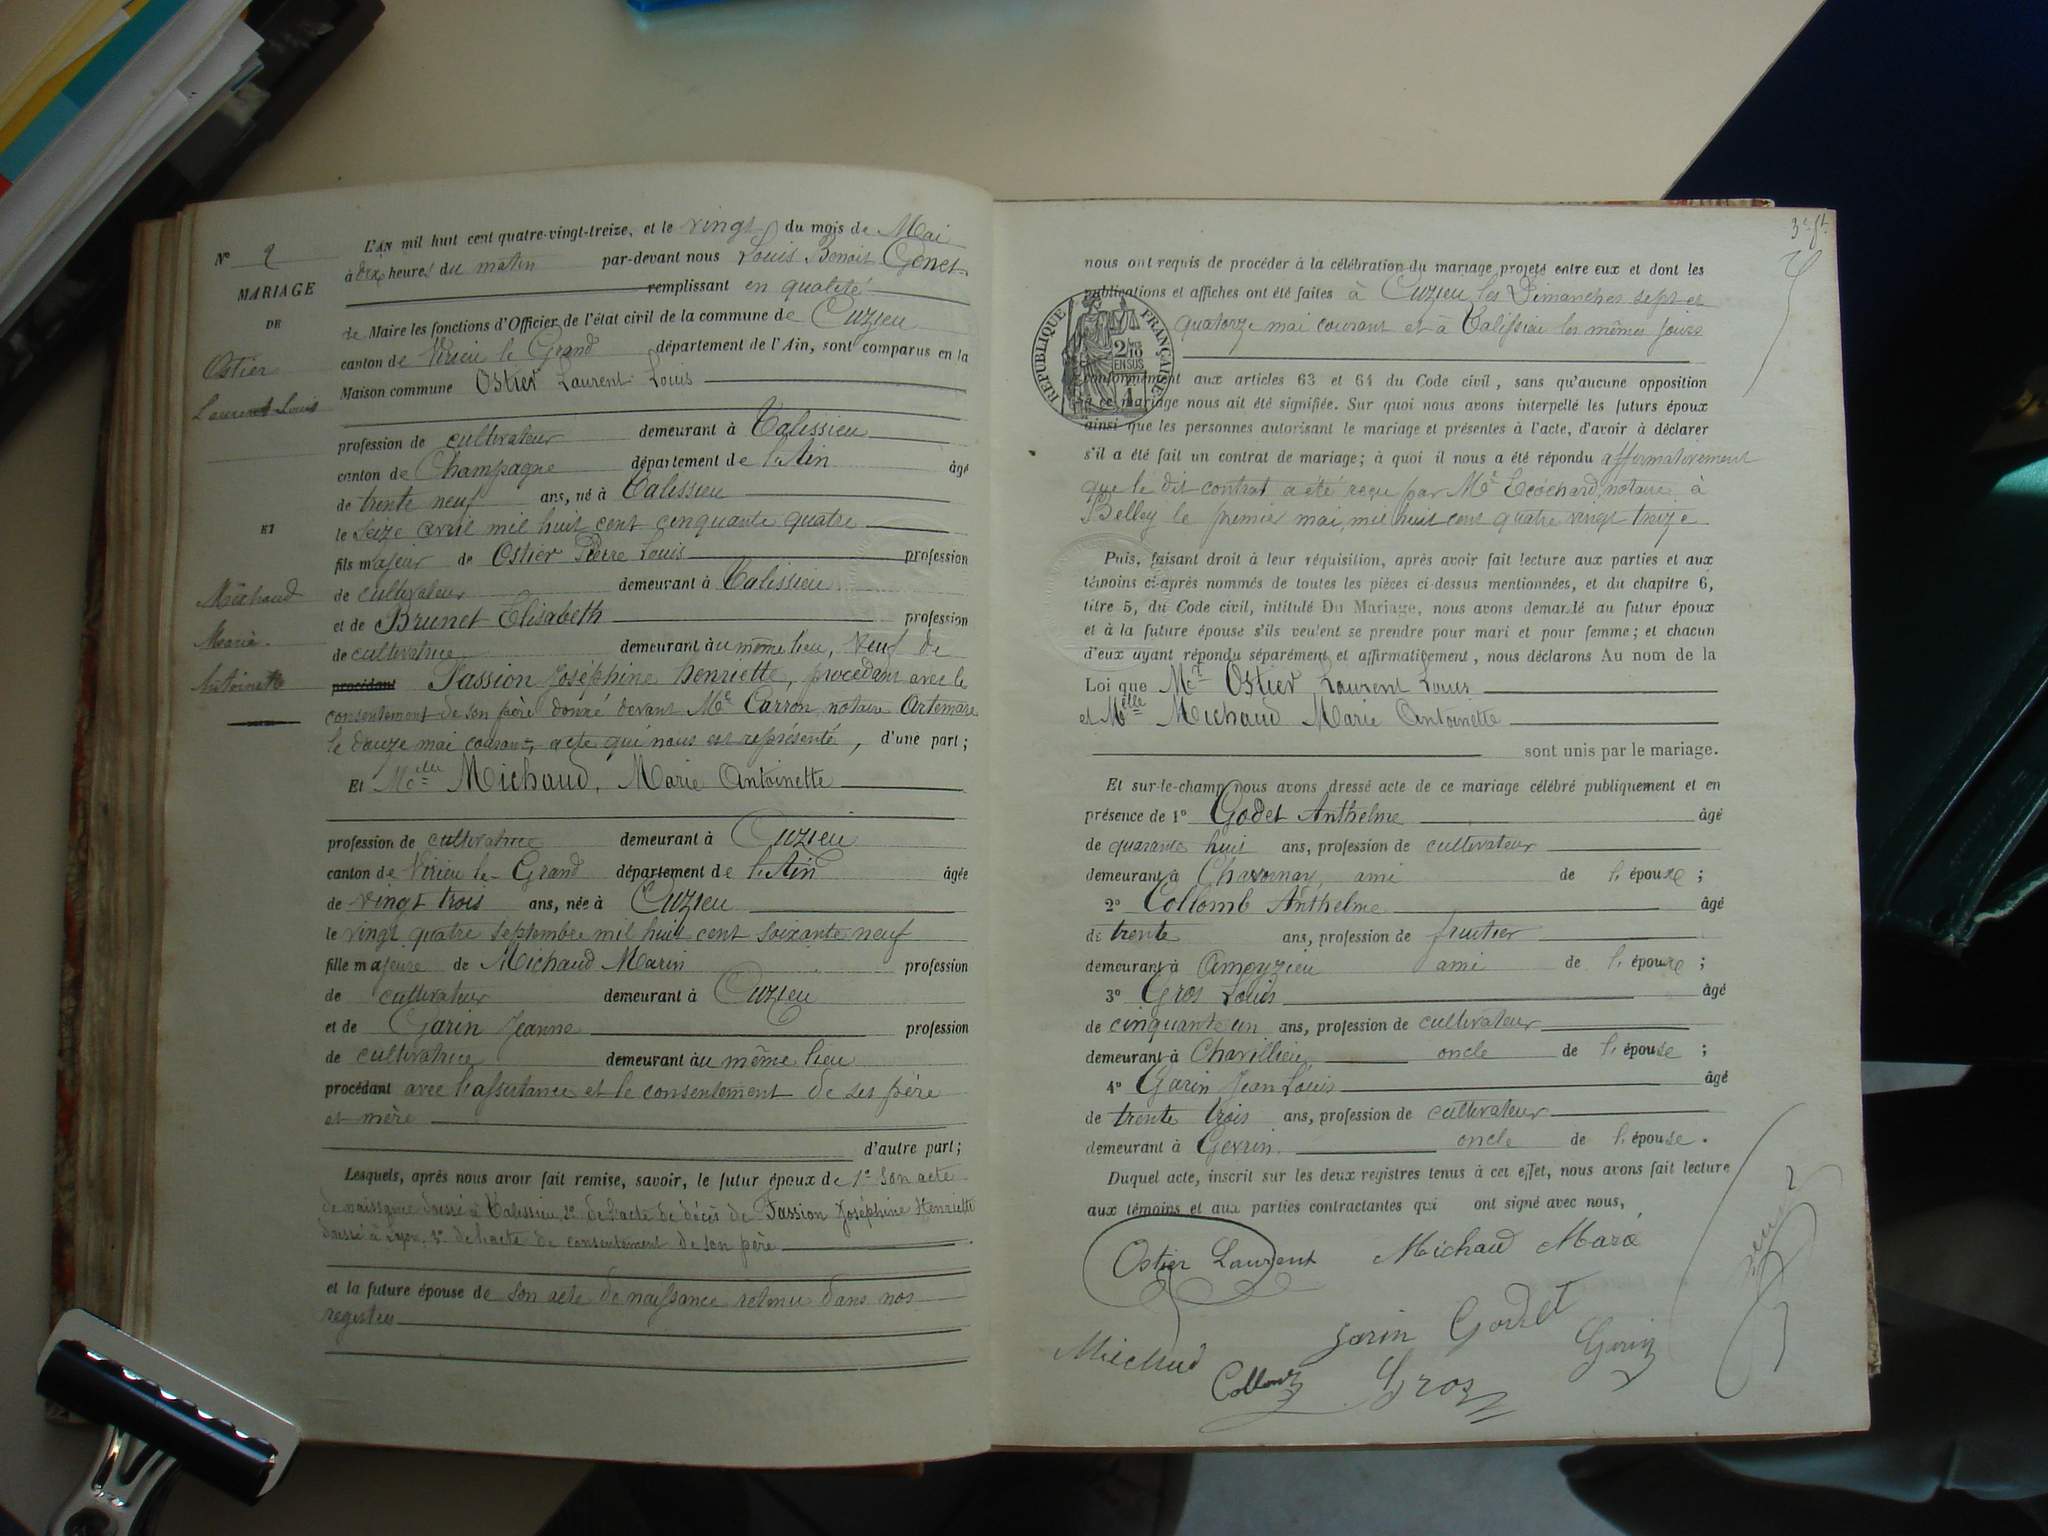 N° 2
MARIAGE
DE
Ostier
Laurent Louis
ET
Michaud
Marie
Antoinette
L'AN mil huit cent quatre-vingt-treize, et le vingt du mois de Mai
à dix heures du matin par-devant nous Louis Benoit Genet
remplissant en qualité
de Maire les fonctions d'Officier de l'état civil de la commune de Cuzieu
canton de Virieu le Grand département de l'Ain, sont comparus en la
Maison commune Ostier Laurent Louis
profession de cultivateur demeurant à Talissieu
canton de Champagne département de l'Ain âgé
de trente neuf ans, né à Talissieu
le seize avril mil huit cent cinquante quatre
fils majeur de Ostier Pierre Louis profession
de cultivateur demeurant à Talissieu
et de Brunet Elisabeth profession
de cultivatrice demeurant au même lieu, veuf de
procédant Fassion Joséphine henriette, procédant avec le
consentement de son père donné devant Me Carron notaire Artemare
le douze mai courant, acte qui nous est représenté, d'une part;
Et Melle Michaud, Marie Antoinette
profession de cultivatrice demeurant à Cuzieu
canton de Virieu le Grand département de l'Ain âgée
de vingt trois ans, née à Cuzieu
le vingt quatre septembre mil huit cent soixante neuf
fille majeure de Michaud Marin profession
de cultivateur demeurant à Cuzieu
et de Garin Jeanne profession
de cultivatrice demeurant au même lieu
procédant avec l'assistance et le consentement de ses père
et mère
d'autre part;
Lesquels, après nous avoir fait remise, savoir, le futur époux de 1° son acte
de naissance dressé à Talissieu, 2° de l'acte de décès de Fassion Joséphine Henriette
dressé à Lyon, 3° de l'acte de consentement de son père
et la future épouse de son acte de naissance retenu dans nos
registres
nous ont requis de procéder à la célébration du mariage projeté entre eux et dont les
publications et affiches ont été faites à Cuzieu les Dimanches sept et
quatorze mai courant et à Talissieu les mêmes jours
RÉPUBLIQUE FRANÇAISE
2/10
EN SUS
conformément aux articles 63 et 64 du Code civil, sans qu'aucune opposition
à ce mariage nous ait été signifiée. Sur quoi nous avons interpellé les futurs époux
ainsi que les personnes autorisant le mariage et présentes à l'acte, d'avoir à déclarer
s'il a été fait un contrat de mariage; à quoi il nous a été répondu affirmativement
que le dit contrat a été reçu par Me Ecochard, notaire à
Belley le premier mai, mil huit cent quatre vingt treize
Puis, faisant droit à leur réquisition, après avoir fait lecture aux parties et aux
témoins ci-après nommés de toutes les pièces ci-dessus mentionnées, et du chapitre 6,
titre 5, du Code civil, intitulé Du Mariage, nous avons demandé au futur époux
et à la future épouse s'ils veulent se prendre pour mari et pour femme; et chacun
d'eux ayant répondu séparément et affirmatifement, nous déclarons Au nom de la
Loi que Mr Ostier Laurent Louis
et Melle Michaud Marie Antoinette
sont unis par le mariage.
Et sur-le-champ nous avons dressé acte de ce mariage célébré publiquement et en
présence de 1° Godet Anthelme âgé
de quarante huit ans, profession de cultivateur
demeurant à Chavornay, ami de l'épouse;
2° Collomb Anthelme âgé
de trente ans, profession de fruitier
demeurant à Ameyzieu ami de l'épouse;
3° Gros Louis âgé
de cinquante un ans, profession de cultivateur
demeurant à Chavillieu oncle de l'épouse;
4° Garin Jean Louis âgé
de trente trois ans, profession de cultivateur
demeurant à Gevrin oncle de l'épouse.
Duquel acte, inscrit sur les deux registres tenus à cet effet, nous avons fait lecture
aux témoins et aux parties contractantes qui ont signé avec nous,
Ostier Laurent Michaud Marie
Garin Godet Garin
Michaud Collomb Gros